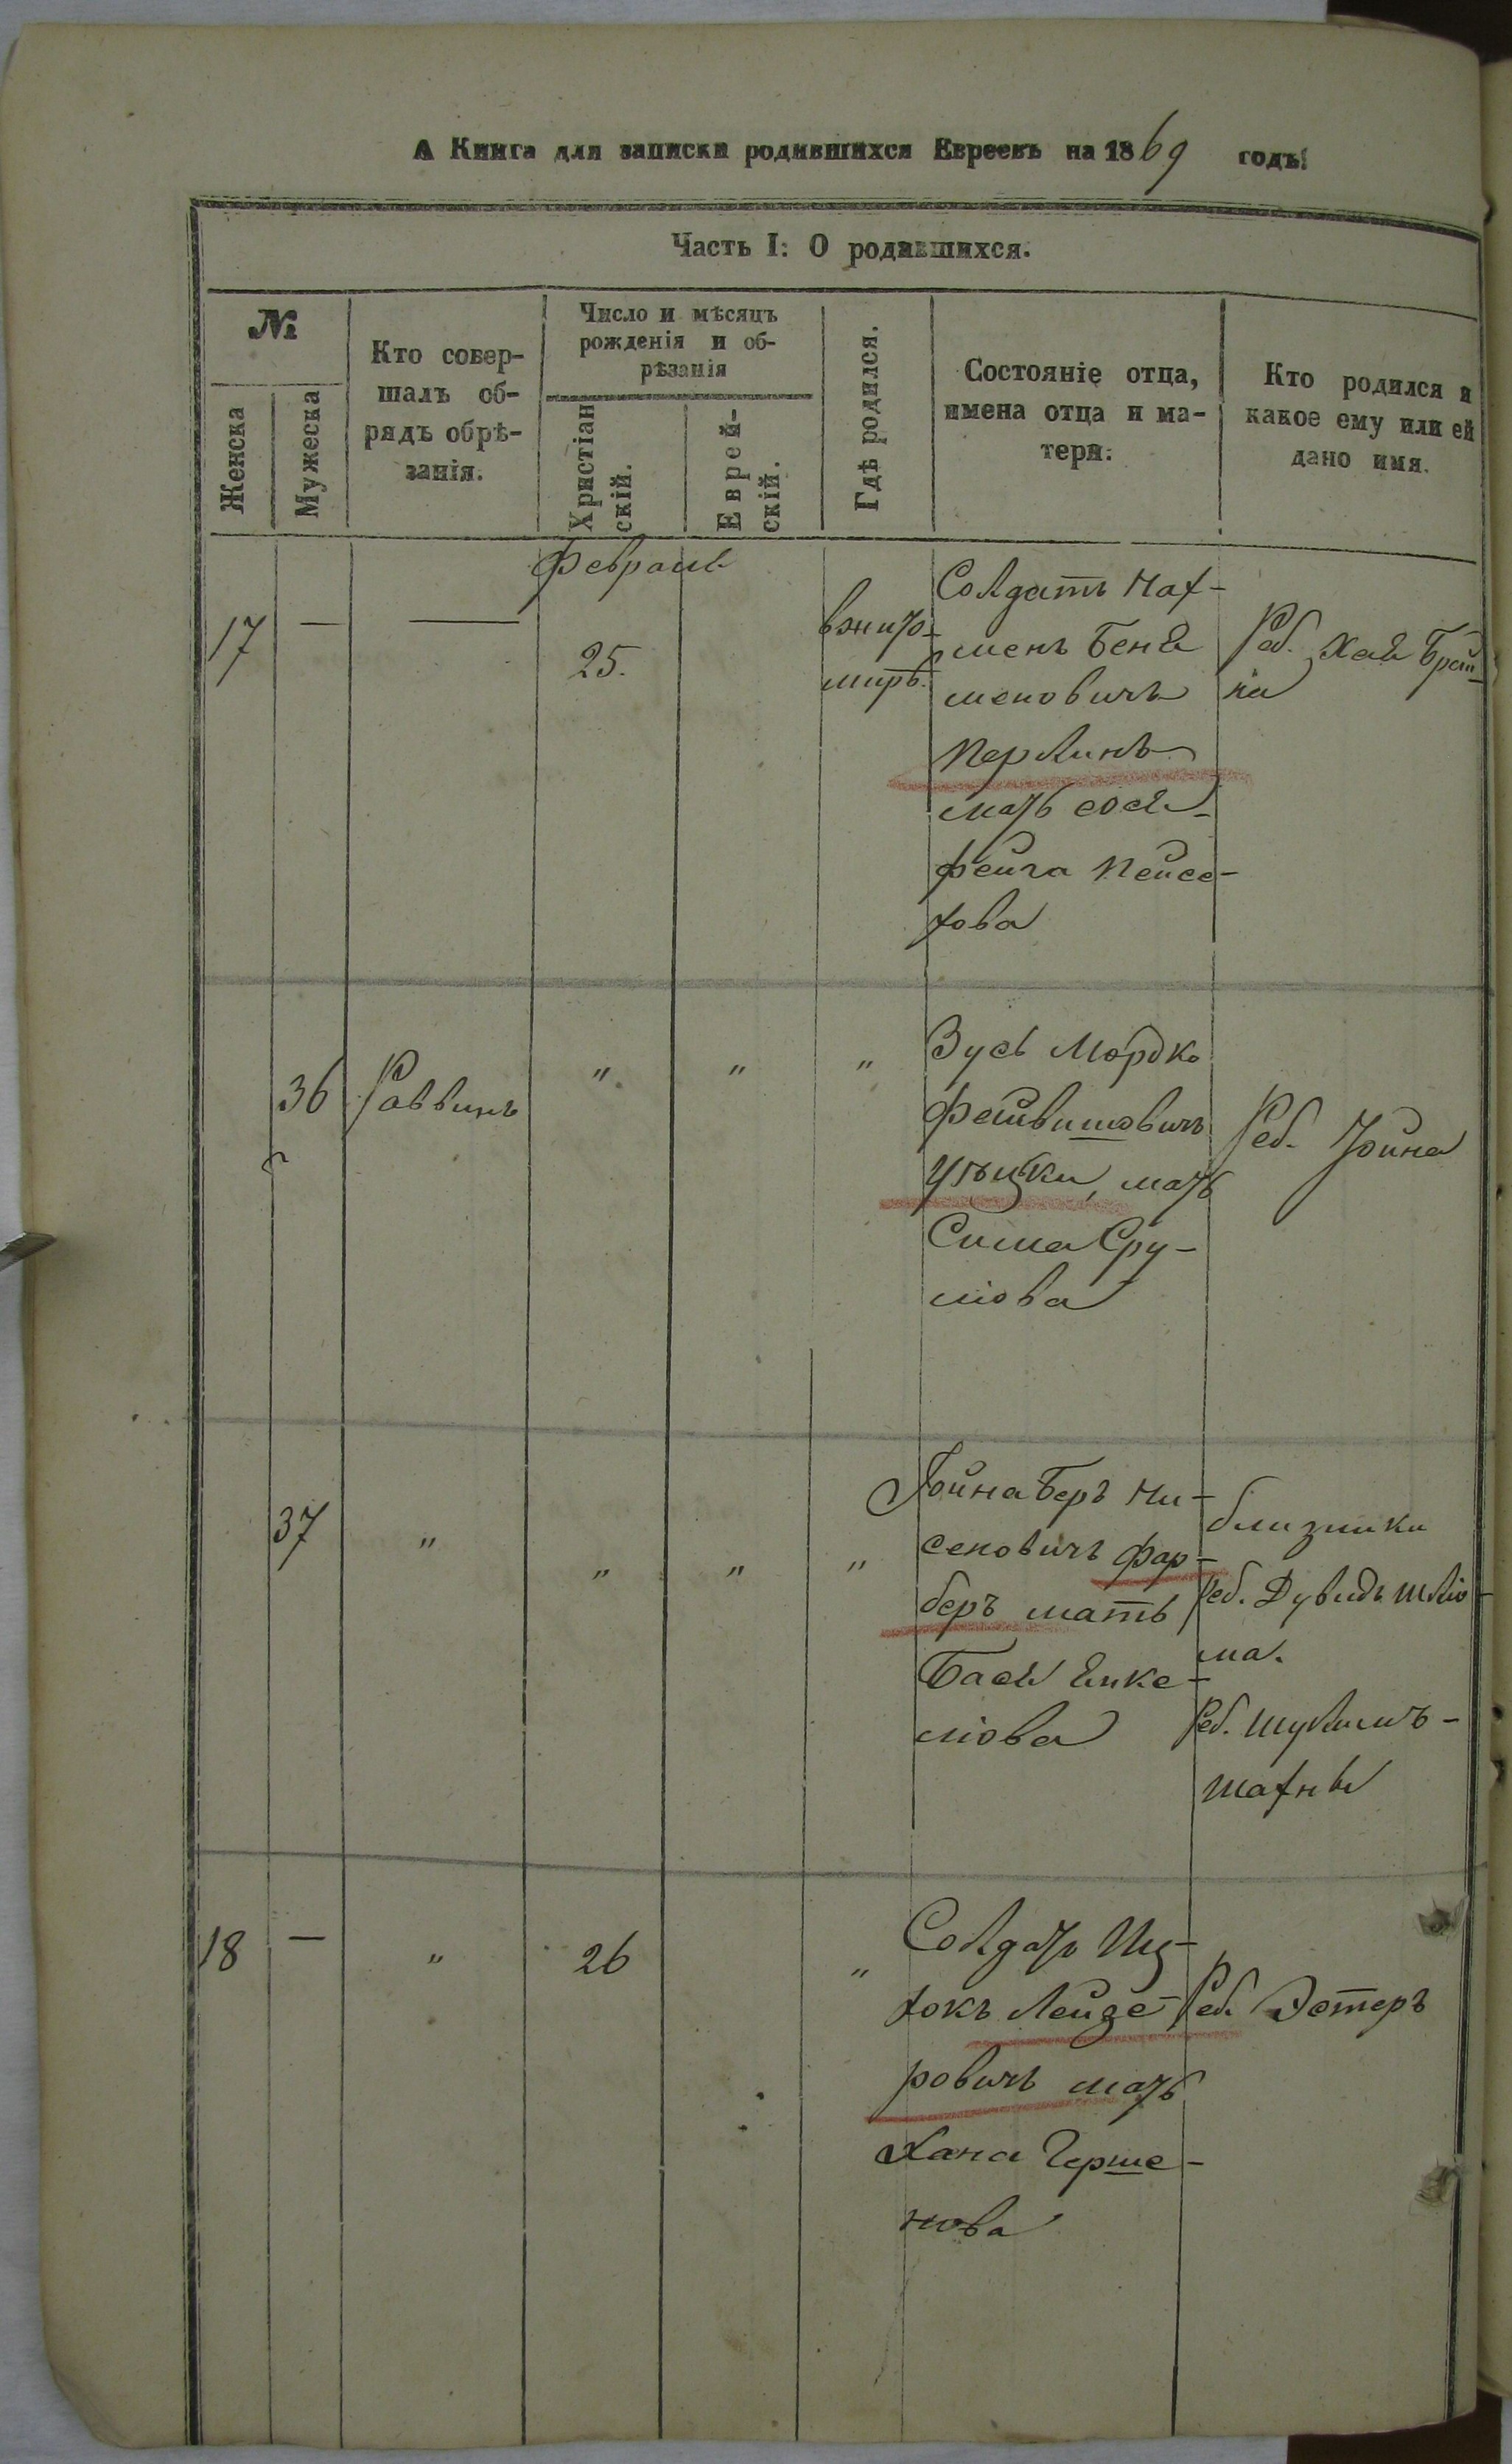 А Книга для записки родившихся Евреевъ на 1869 годъ:
Часть I: О родившихся.
№
Женска
Мужеска
Кто совер-
шалъ об-
рядъ обрѣ-
занія.
Число и мѣсяцъ
рожденія и об-
рѣзанія
Христіан
скій.
Еврей-
скій.
Гдѣ родился.
Состояніе отца,
имена отца и ма-
тери.
Кто родился и
какое ему или ей
дано имя.
Февраль
17
—
—
25.
вжито-
миръ.
Солдатъ Нах-
менъ Беня
меновичъ
Перлинъ
мать Сося
Фейга Пейсо-
хова
Реб. Хая Брай-
на
36
Раввинъ
"
"
"
Зусь Мордко
Фейвишовичъ
мать
Сима Сру-
лiова
Реб. Йойна
37
"
"
"
"
Йойна Беръ Ни-
сеновичъ Фар-
беръ мать
Бася Янке-
лiова
близники
Реб. Дувидъ Шлiо-
ма.
Реб. Шулимъ-
Шахне
18
—
"
26
"
Солдатъ Иц-
хокъ Лейзе-
ровичъ мать
Хана Герше-
нова
Реб. Эстеръ